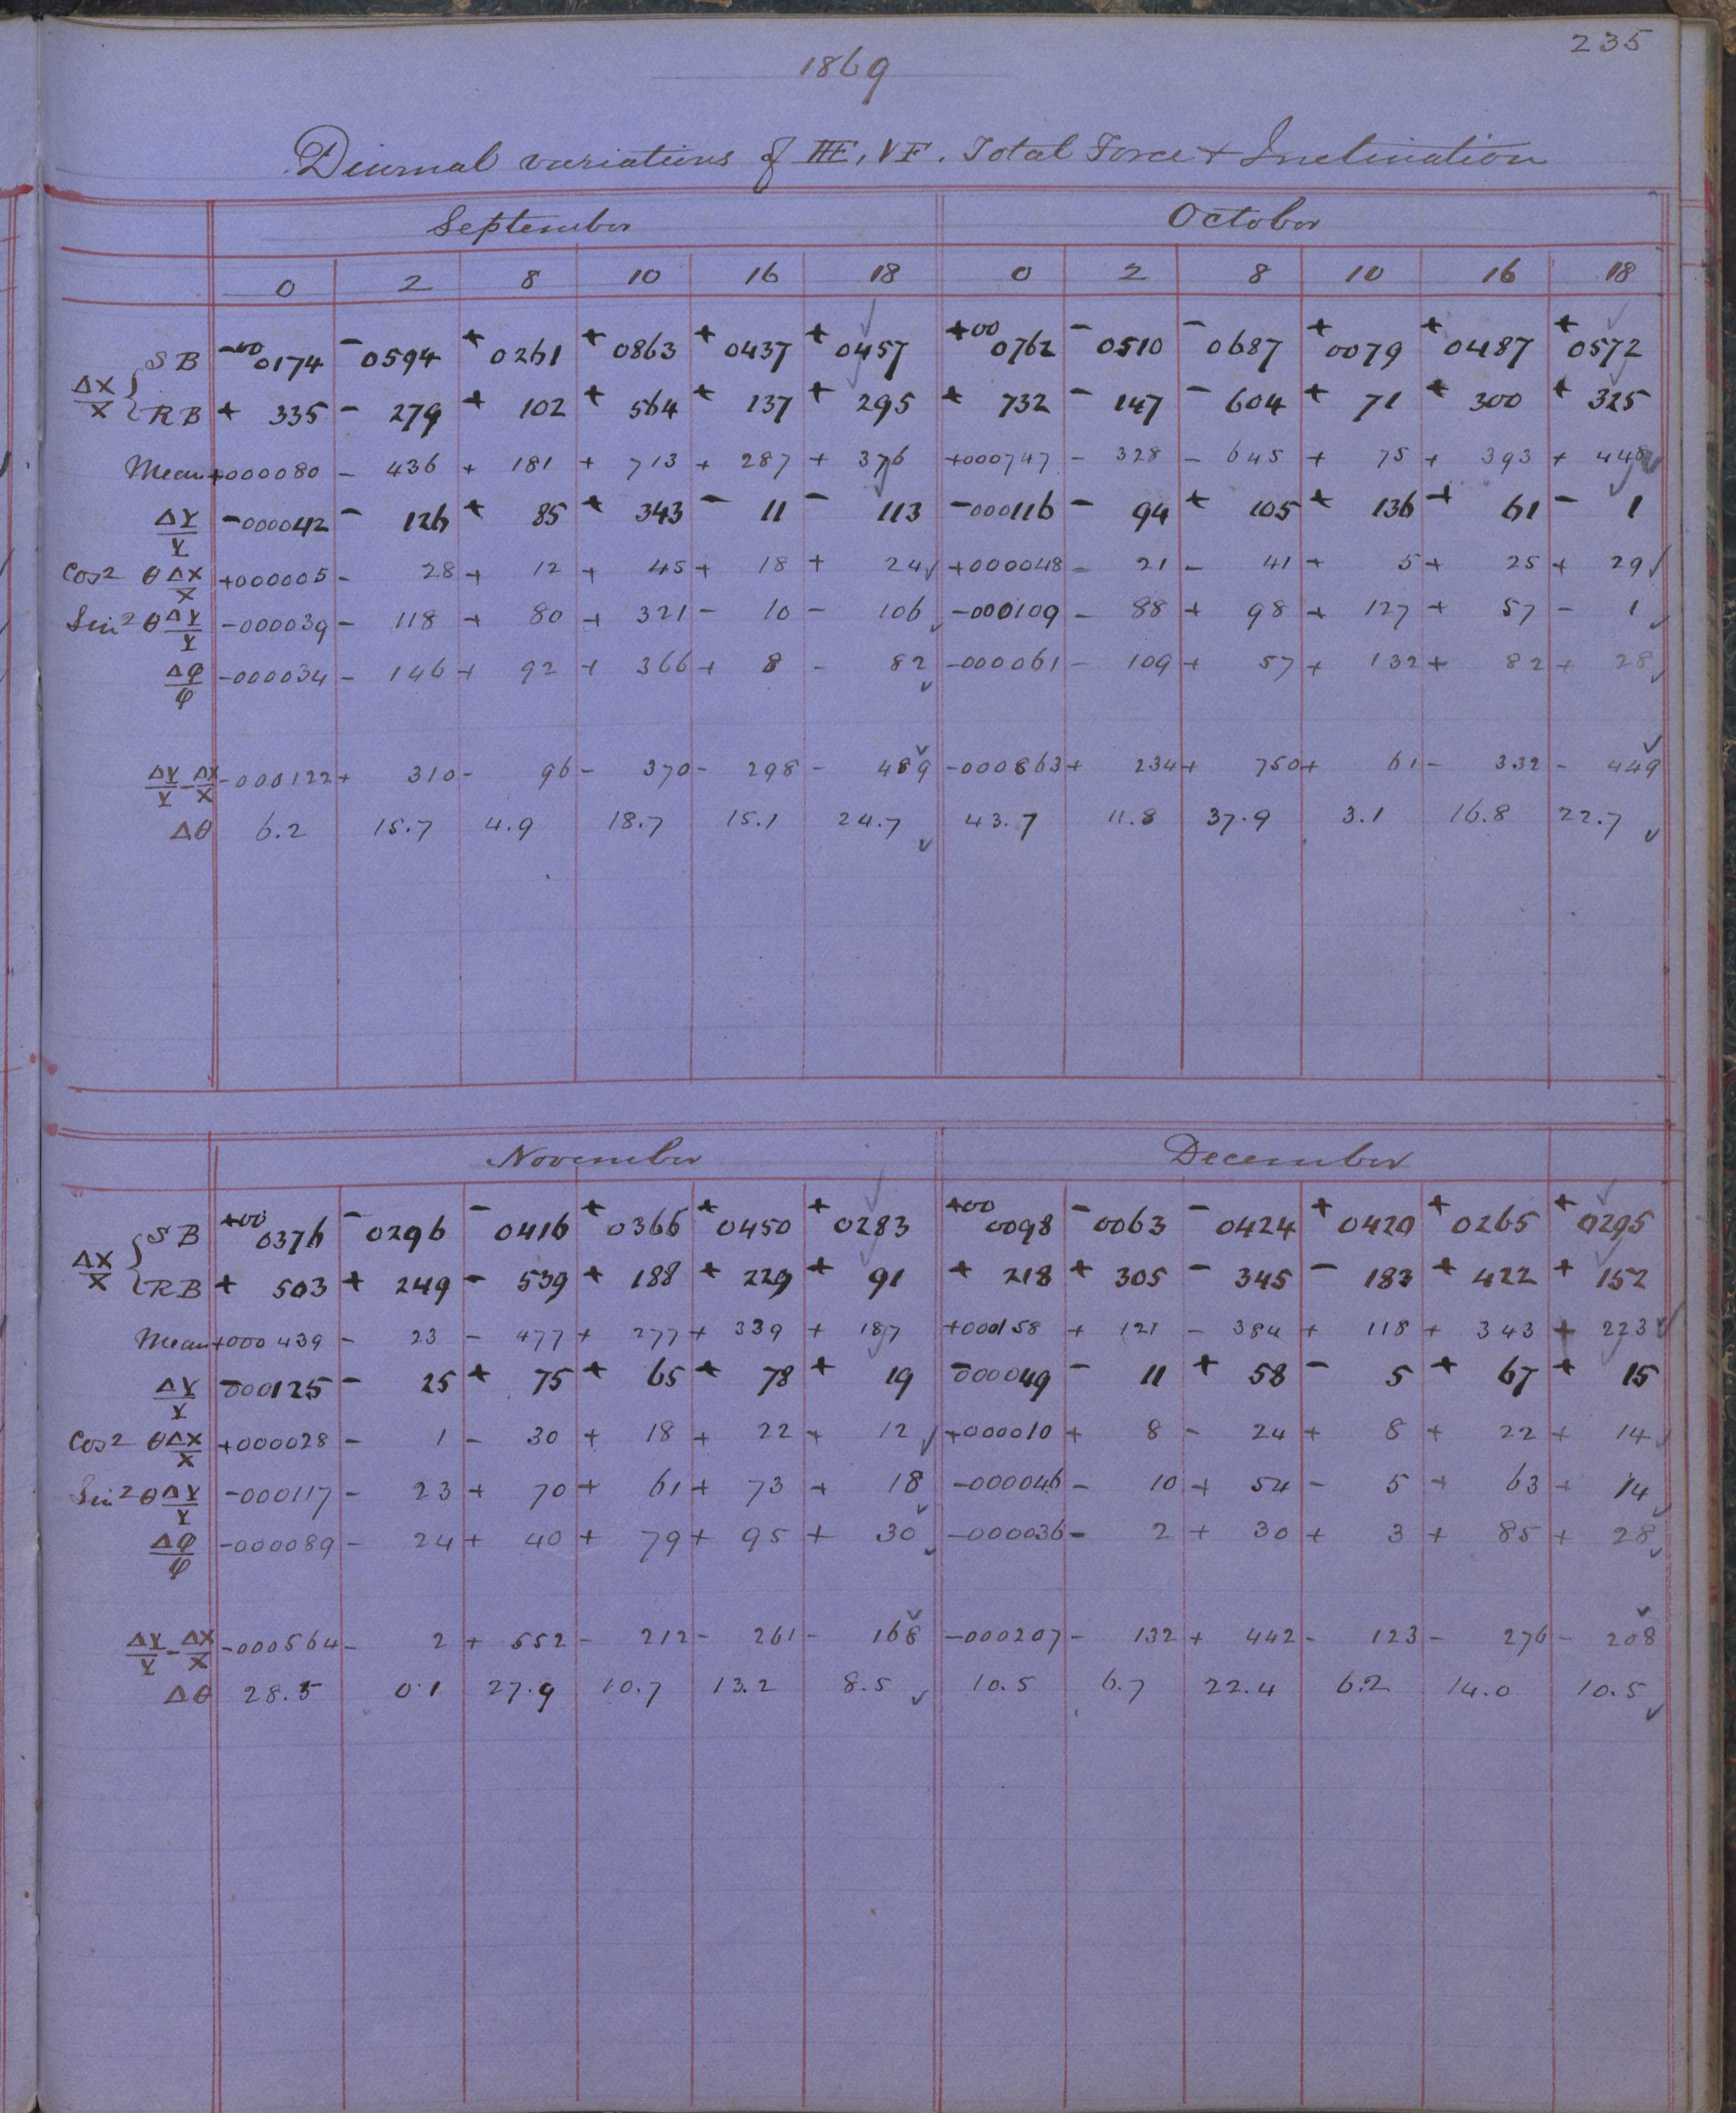 235
1869
Diurnal variations of HF, VF. Total Force + Inclination
September October
0 2 8 10 16 18 0 2 8 10 16 18
ΔX/X { SB -00 0174 - 0594 + 0261 + 0863 + 0437 + 0457 +00 0762 - 0510 - 0687 + 0079 + 0487 + 0572
RB + 335 - 279 + 102 + 564 + 137 + 295 + 732 - 147 - 604 + 71 + 300 + 325
Mean +000080 - 436 + 181 + 713 + 287 + 376 +000747 - 328 - 645 + 75 + 393 + 448
ΔY/Y -000042 - 126 + 85 + 343 - 11 - 113 -000116 - 94 + 105 + 136 + 61 - 1
Cos2 θ ΔX/X +000005 - 28 + 12 + 45 + 18 + 24 +000048 - 21 - 41 + 5 + 25 + 29
Sin2 θ ΔY/Y -000039 - 118 + 80 + 321 - 10 - 106 -000109 - 88 + 98 + 127 + 57 - 1
Δφ/φ -000034 - 146 + 92 + 366 + 8 - 82 -000061 - 109 + 57 + 132 + 82 + 28
ΔY/Y - ΔX/X -000122 + 310 - 96 - 370 - 298 - 489 -000863 + 234 + 750 + 61 - 332 - 449
Δθ 6.2 15.7 4.9 18.7 15.1 24.7 43.7 11.8 37.9 3.1 16.8 22.7
November December
ΔX/X { SB +00 0376 - 0296 - 0416 + 0366 + 0450 + 0283 +00 0098 - 0063 - 0424 + 0420 + 0265 + 0295
RB + 503 + 249 - 539 + 188 + 229 + 91 + 218 + 305 - 345 - 183 + 422 + 152
Mean +000439 - 23 - 477 + 277 + 339 + 187 +000158 + 121 - 384 + 118 + 343 + 223
ΔY/Y -000125 - 25 + 75 + 65 + 78 + 19 -000049 - 11 + 58 - 5 + 67 + 15
Cos2 θ ΔX/X +000028 - 1 - 30 + 18 + 22 + 12 +000010 + 8 - 24 + 8 + 22 + 14
Sin2 θ ΔY/Y -000117 - 23 + 70 + 61 + 73 + 18 -000046 - 10 + 54 - 5 + 63 + 14
Δφ/φ -000089 - 24 + 40 + 79 + 95 + 30 -000036 - 2 + 30 + 3 + 85 + 28
ΔY/Y - ΔX/X -000564 - 2 + 552 - 212 - 261 - 168 -000207 - 132 + 442 - 123 - 276 - 208
Δθ 28.5 0.1 27.9 10.7 13.2 8.5 10.5 6.7 22.4 6.2 14.0 10.5